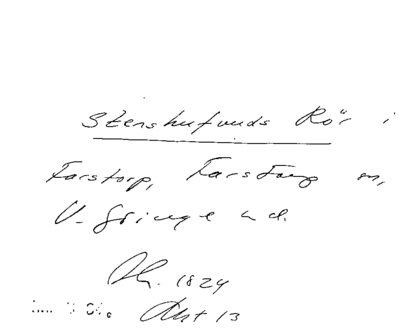 Stenshufvuds Rör i
Farstorp, Farstorp sn,
V. Göinge hd.
1824
Akt 13